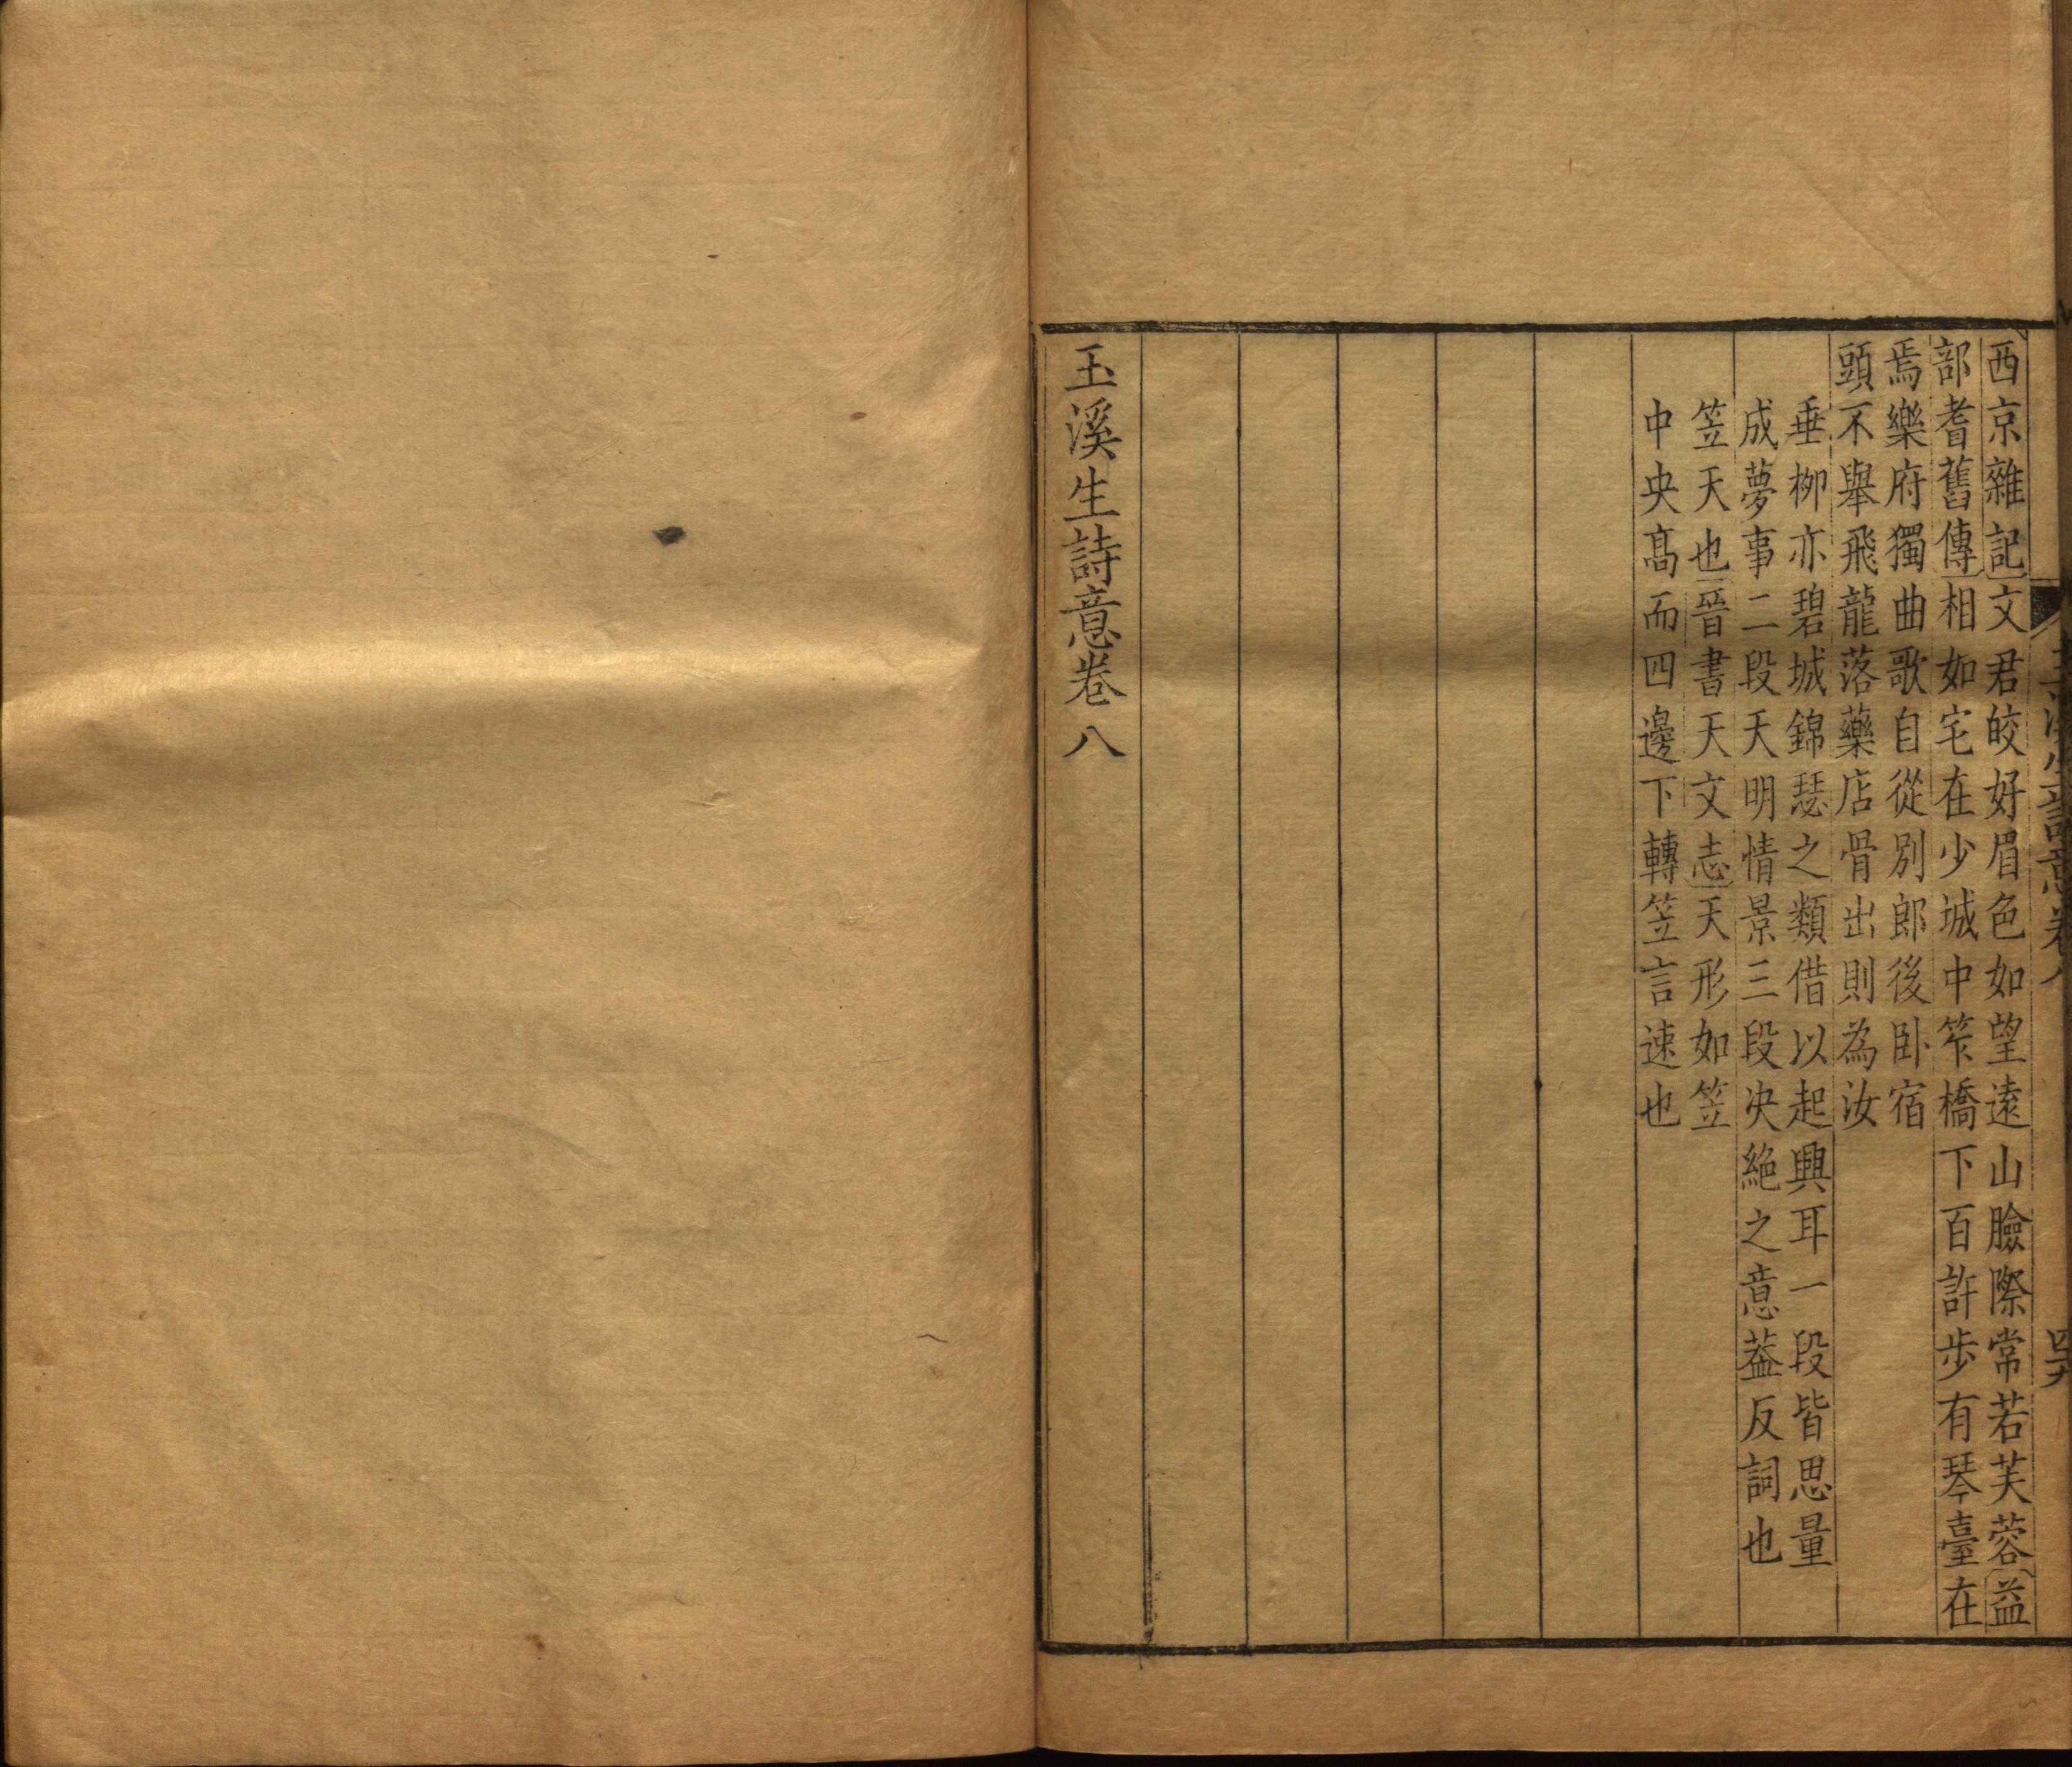 西京雜記文君皎好眉色如望遠山臉際常若芙蓉益
部耆舊傳相如宅在少城中笮橋下百許步有琴臺在
焉樂府獨曲歌自從別郎後卧宿
頭不舉飛龍落藥店骨出則為汝
垂栁亦碧城錦瑟之類借以起興耳一段皆思量
成夢事二段天明情景三段决絶之意葢反詞也
笠天也晉書天文志天形如笠
中央髙而四邊下轉笠言速也
玉溪生詩意卷八